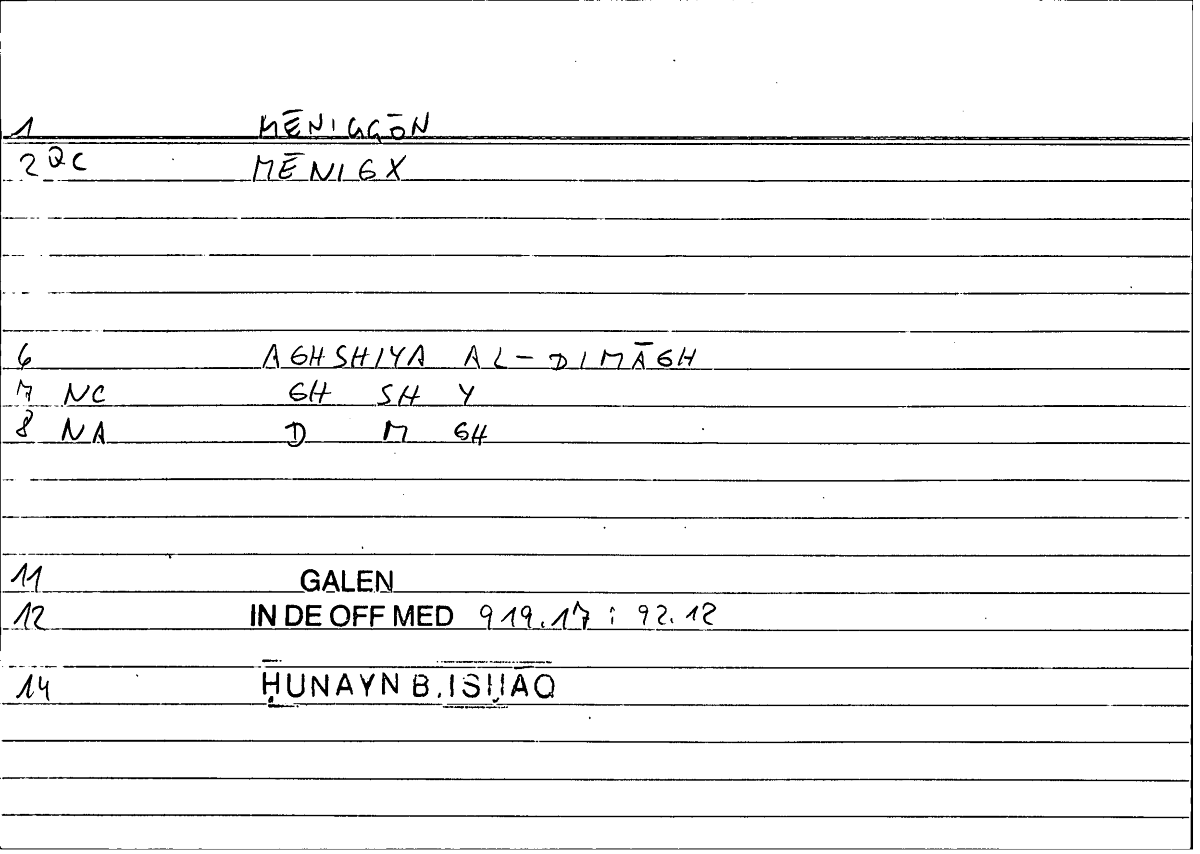 1 MĒNIGGŌN
2 QC MĒNIGX
6 AGHSHIYA AL-DIMĀGH
7 NC GH SH Y
8 NA D M GH
11 GALEN
12 IN DE OFF MED 919.17 ; 92.12
14 ḤUNAYN B. ISḤĀQ